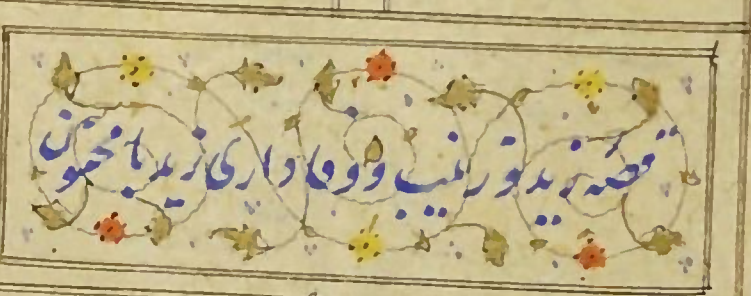 قصّه زید و زینب و وفاداری زید با مجنون